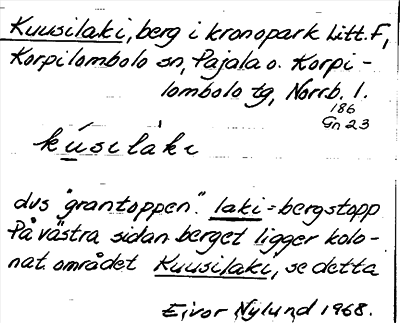 Kuusilaki, berg i kronopark Litt. F,
Korpilombolo sn, Pajala o. Korpi-
lombolo tg, Norrb. l.
186
Gn 23
kúsilàki
dvs "grantoppen". laki = bergstopp
På västra sidan berget ligger kolo-
nat området Kuusilaki, se detta
Eivor Nylund 1968.